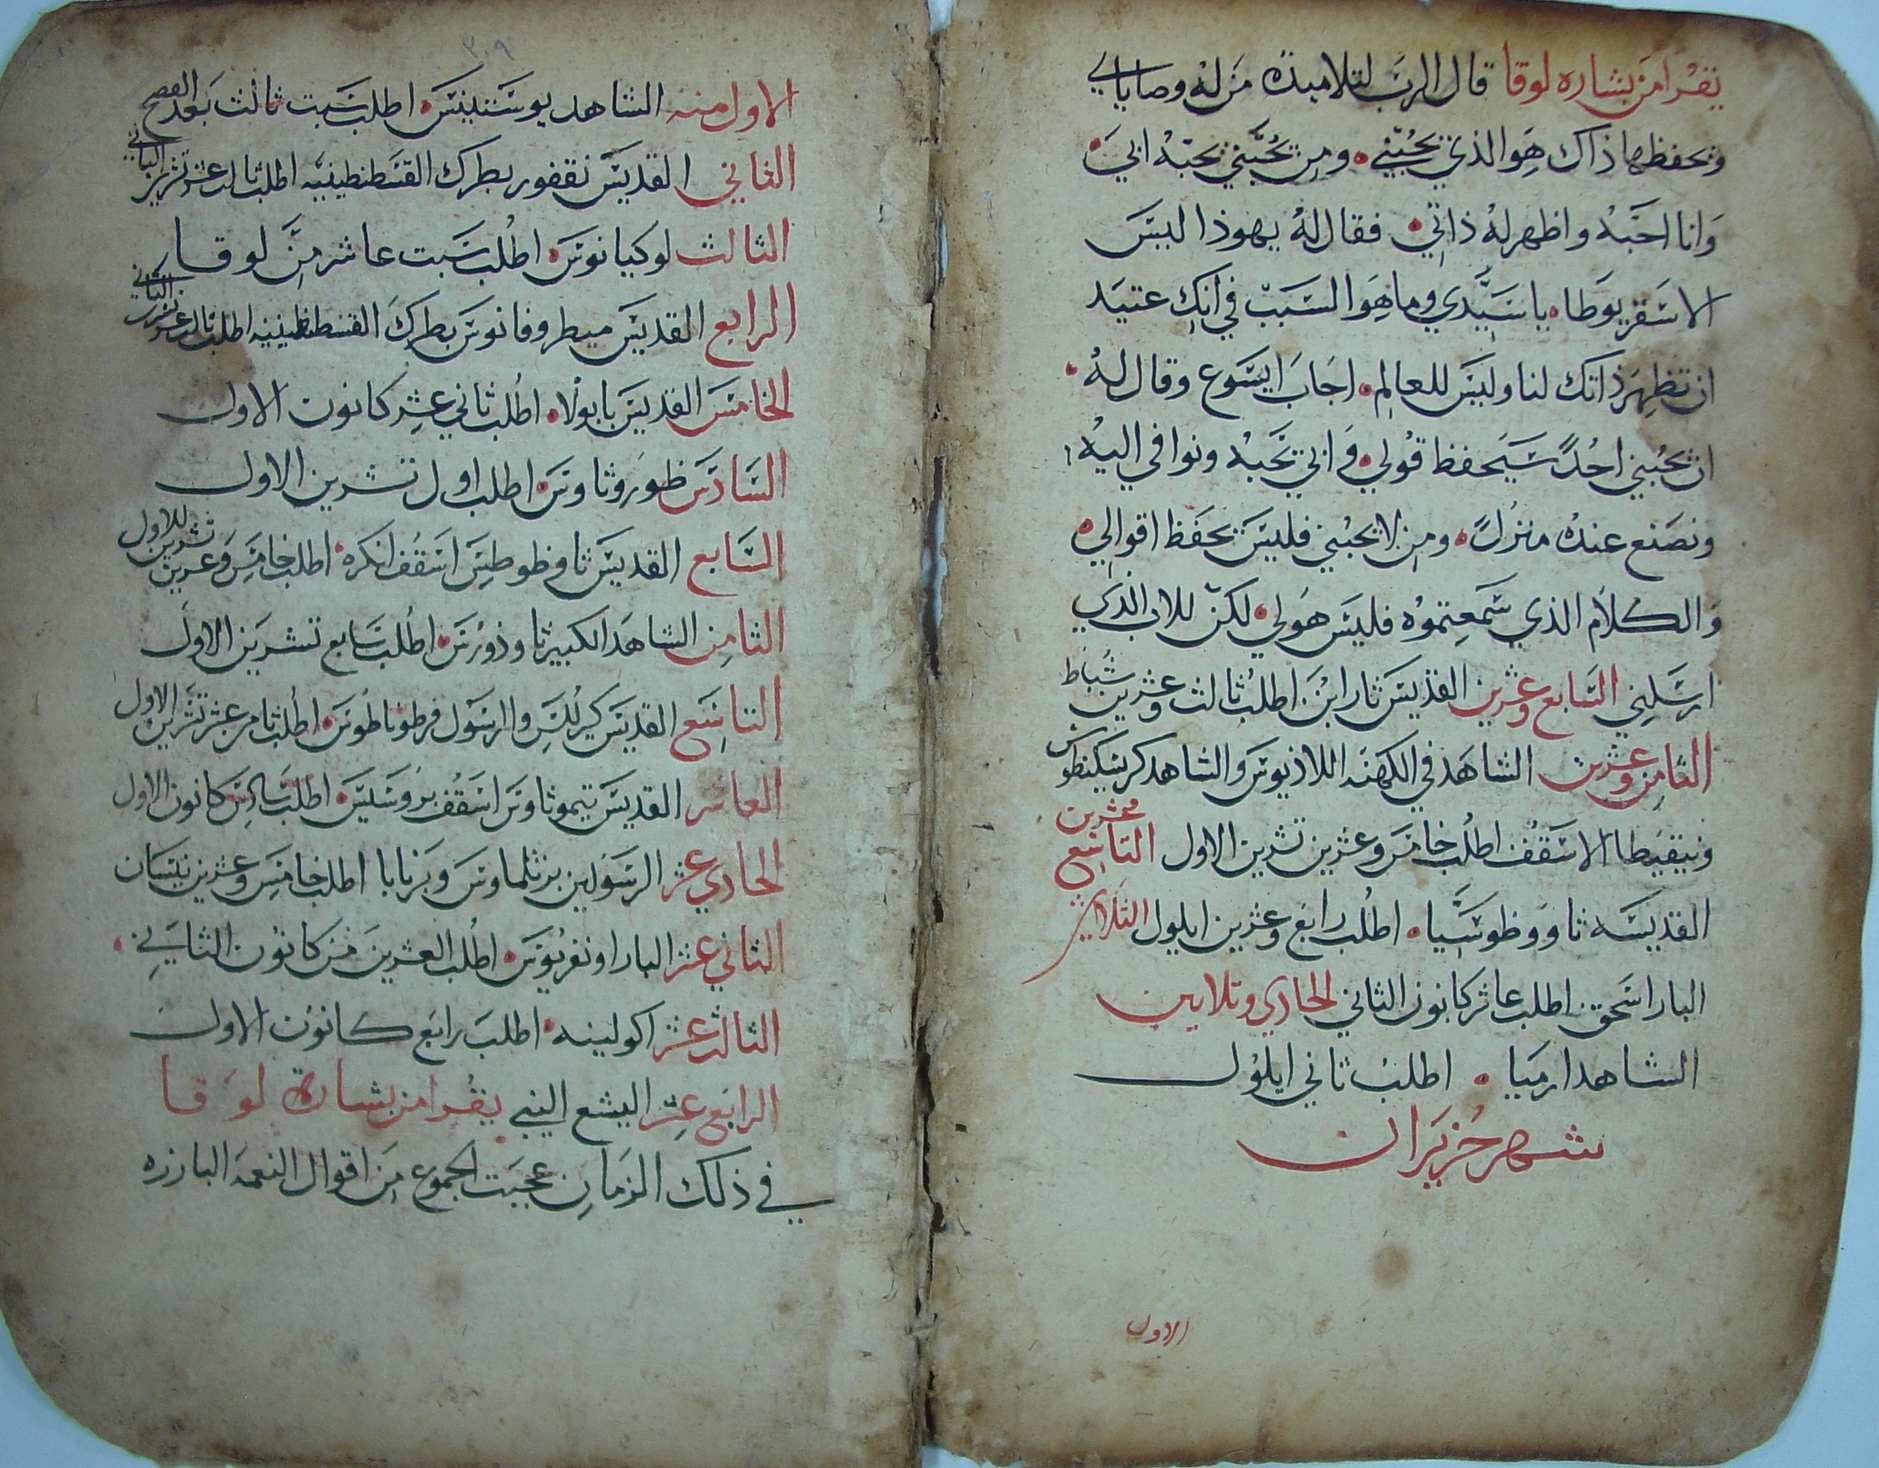 يقرا من بشاره لوقا قال الرب لتلاميذه من له وصاياي
ويحفظها ذاك هو الذي يحبني ومن يحبني يحبه ابي
وانا احبه واظهر له ذاتي فقال له يهوذا ليس
الاسقريوطا يا سيدي وما هو السبب في انك عتيد
ان تظهر ذاتك لنا وليس للعالم اجاب ايسوع وقال له
ان يحبني احدً سيحفظ قولي وابي يحبه ونوافي اليه
ونصنع عنده منزلً ومن لا يحبني فليس يحفظ اقوالي
والكلام الذي سمعتموه فليس هو لي لكن للاب الذي
ارسلني السابع وعشرين القديس ثارابن اطلب ثالث وعشرين شباط
الثامن وعشرين الشاهد في الكهنه اللاذيوس والشاهد كريسكنطوس
ونيقيطا الاسقف اطلب خامس وعشرين تشرين الاول التاسع عشرين
القديسه ثاووظوسيا اطلب رابع وعشرين ايلول الثلاثين
البار اسحق اطلب عاشر كانون الثاني الحادي وثلاثين
الشاهد ارميا اطلب ثاني ايلول
شهر حزيران
الاول
٣٠٩
الاول منه الشاهد يوستينس اطلب سبت ثالث بعد الفصح
الثاني القديس نقفور بطرك القسطنطينيه اطلب ثالث عشر تشرين الثاني
الثالث لوكيانوس اطلب سبت عاشر من لوقا
الرابع القديس ميطروفانوس بطرك القسطنطينيه اطلب ثالث عشر تشرين الثاني
الخامس القديس بابولا اطلب ثاني عشر كانون الاول
السادس ظوروثاوس اطلب اول تشرين الاول
السابع القديس ثاوظوطس اسقف انكره اطلب خامس وعشرين تشرين الاول
الثامن الشاهد الكبير ثاوذورس اطلب سابع تشرين الاول
التاسع القديس كيرللس والرسول فرطوناطوس اطلب ثامن عشر تشرين الاول
العاشر القديس تيموثاوس اسقف بروسيس اطلب سادس كانون الاول
الحادي عشر الرسولين برثلماوس وبرنابا اطلب خامس وعشرين نيسان
الثاني عشر البار اونفريوس اطلب العشرين من كانون الثاني
الثالث عشر اكولينه اطلب رابع كانون الاول
الرابع عشر اليشع النبي يقرا من بشارة لوقا
في ذلك الزمان عجبت الجموع من اقوال النعمه البارزه